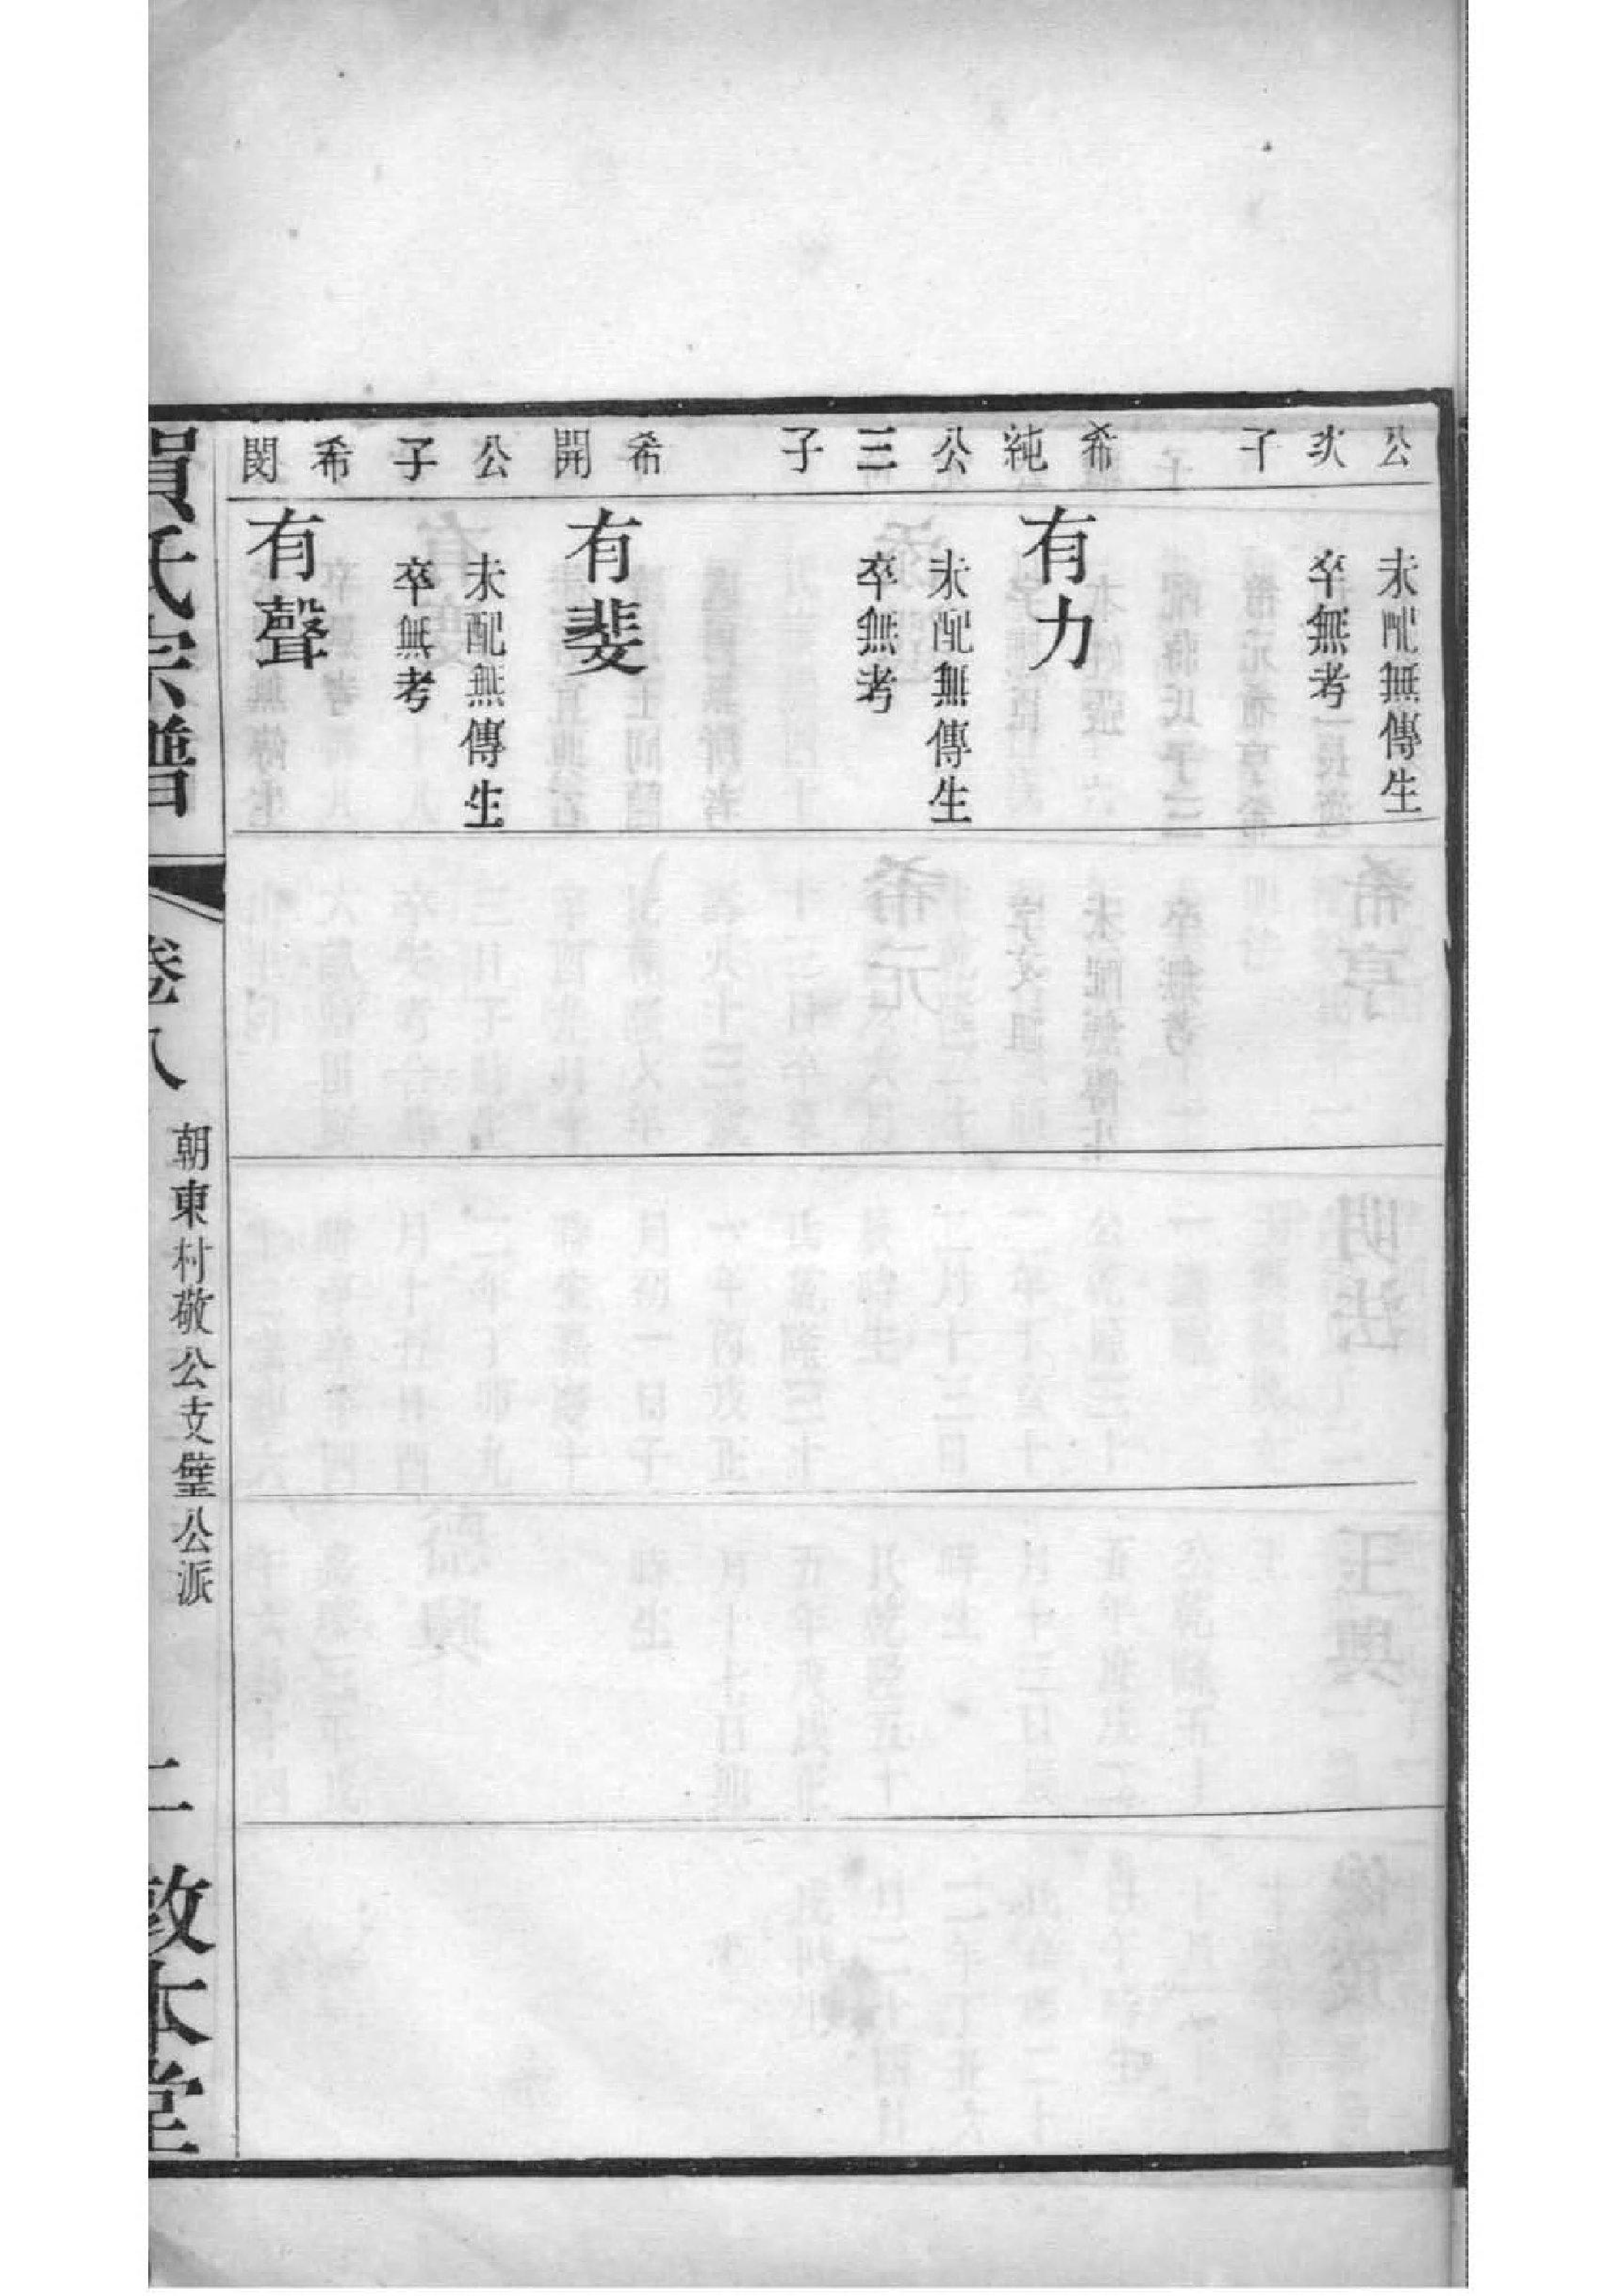 公次子
未配無傳生
卒無考
希純公三子
有力
未配無傳生
卒無考
希開公子
有斐
未配無傳生
卒無考
希閔
有聲
賀氏宗譜
卷八
朝東村敬公支璧公派
二
敦本堂